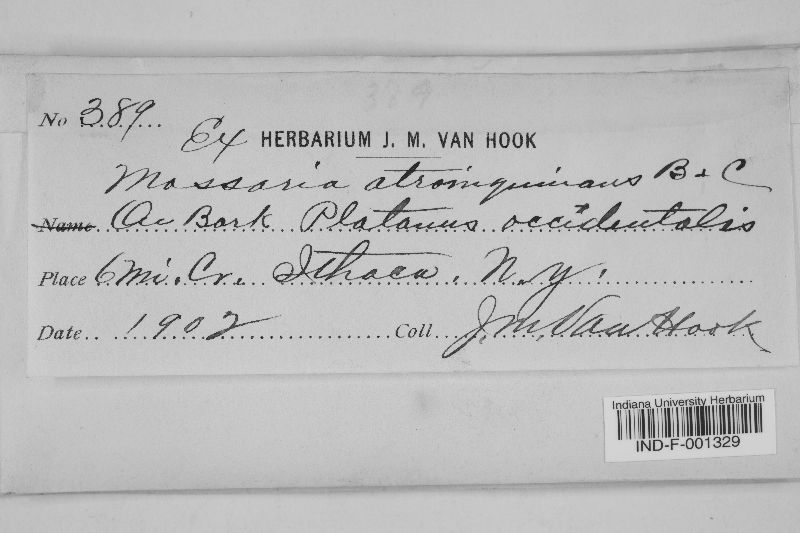 389
No 389
Ex HERBARIUM J. M. VAN HOOK
Massaria atroinquinans B + C
Name On Bark Platanus occidentalis
Place 6 Mi. Cr. Ithaca, N.Y.
Date 1902 Coll. J. M. Van Hook
Indiana University Herbarium
IND-F-001329